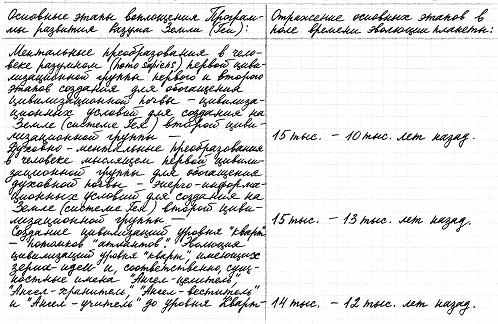 Основные этапы воплощения Програм-
мы развития разума Земли (Геи):
Отражение основных этапов в
поле времени эволюции планеты:
Ментальные преобразования в чело-
веке разумном (homo sapiens) первой циви-
лизационной группы первого и второго
этапов создания для обогащения
цивилизационной почвы - цивилиза-
ционных условий для создания на
Земле (системе Гея) второй циви-
лизационной группы —
15 тыс. - 10 тыс. лет назад.
Духовно-ментальные преобразования
в человеке мыслящем первой цивили-
зационной группы для обогащения
духовной почвы - энерго-информа-
ционных условий для создания на
Земле (системе Гея) второй циви-
лизационной группы —
15 тыс. - 13 тыс. лет назад.
Создание цивилизаций уровня "кварт"
- потомков "атлантов". Эволюция
цивилизаций уровня "кварт", имеющих
зерна-идеи и, соответственно, сущ-
ностные имена "Ангел-целитель",
"Ангел-хранитель", "Ангел-веститель"
и "Ангел-учитель" до уровня Кварт-
14 тыс. - 12 тыс. лет назад.